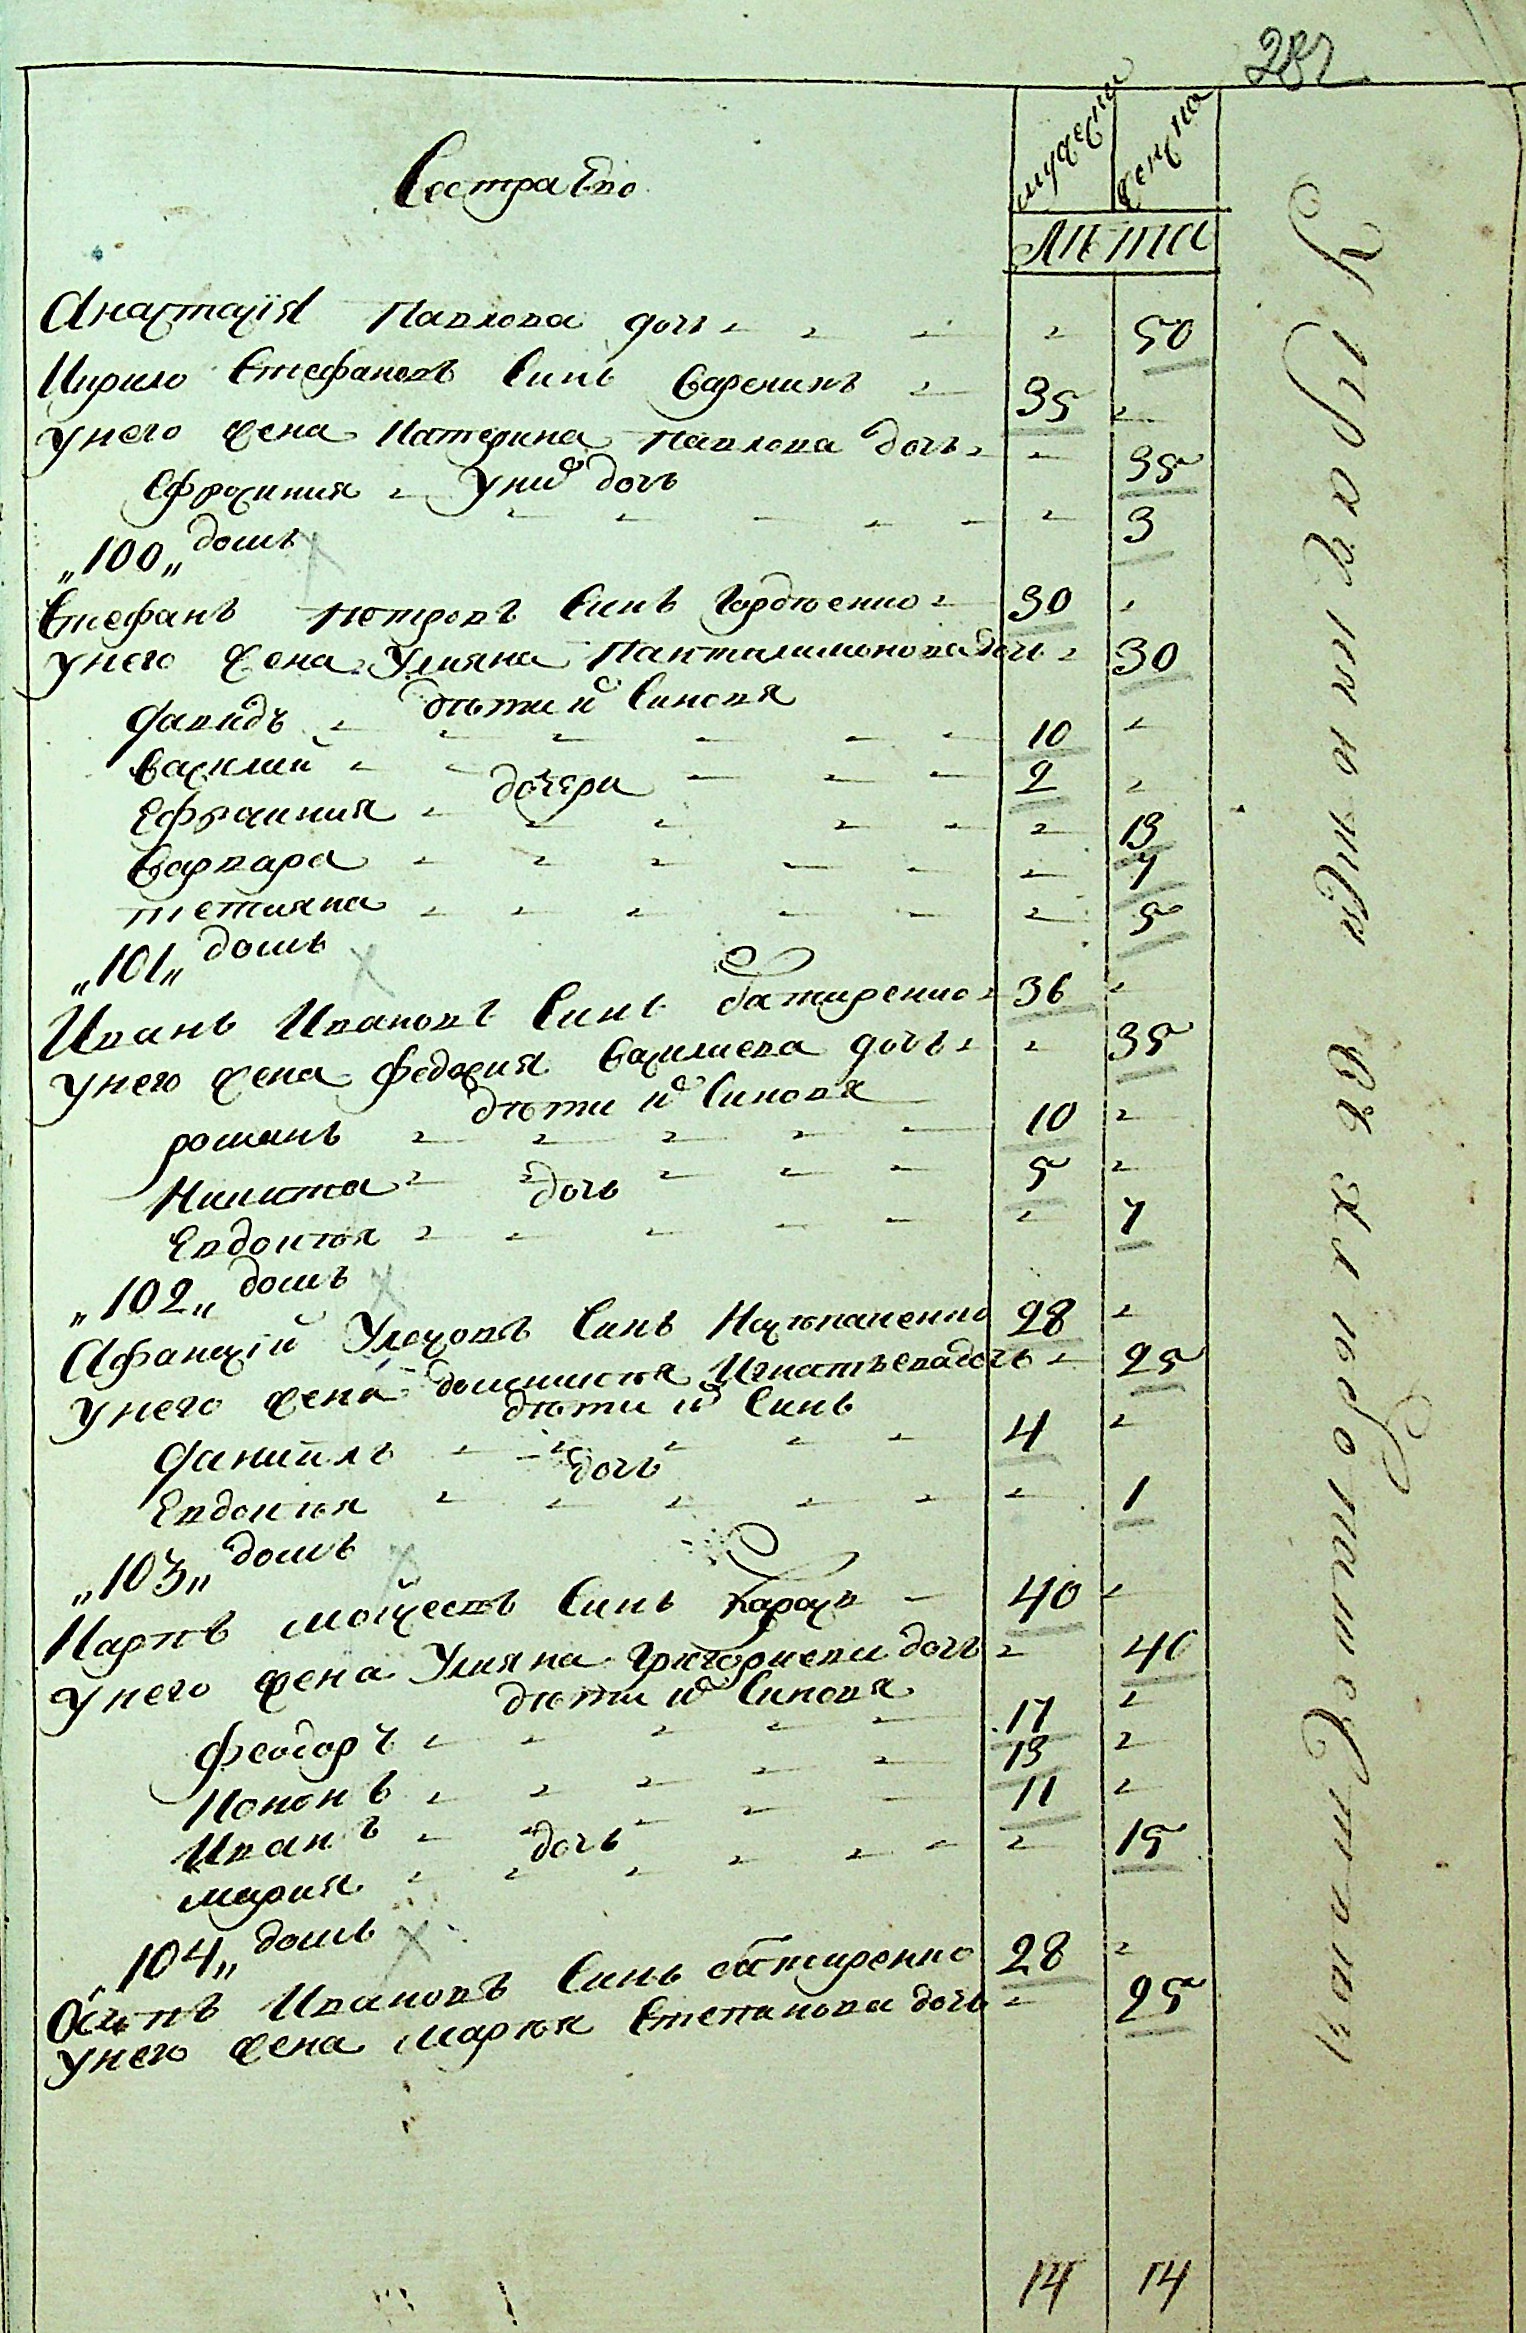 мужеска женска
Сестра Его
Лѣта
Анастасїя Павлова дочь 50
Кирило Стефановъ Синъ Варениκъ 35
унего жена Катерина Павлова дочь 35
унихъ дочь
Ефросиния 3
„100„ домъ
Стефанъ Петровъ Синъ Гордѣенко 30
унего жена Улияна Панталимонова дочь 30
дѣти ихъ Синовя
Давидъ 10
Василий 2
дочери
Ефросиния 13
Варвара 7
Тетияна 5
„101„ домъ
Иванъ Ивановъ Синъ Батиренко 36
унего жена Федосия Василиева дочь 35
дѣти ихъ Синовя
романъ 10
Никита 5
дочь
Евдокия 7
„102„ домъ
Афанасїй Синъ 28
унего жена Игнатьева дочь 25
дѣти ихъ Синъ
Даниилъ 4
дочь
Евдокия 1
„103„ домъ
Карпъ Мойсеевъ Синъ 40
унего жена Улияна Григориева дочь 40
дѣти ихъ Синовя
Феодоръ 17
Кононъ 13
Иванъ 11
дочь
Мария 15
„104„ домъ
Осипъ Ивановъ Синъ Батиренко 28
унего жена Мария Степанова дочь 25
14 14